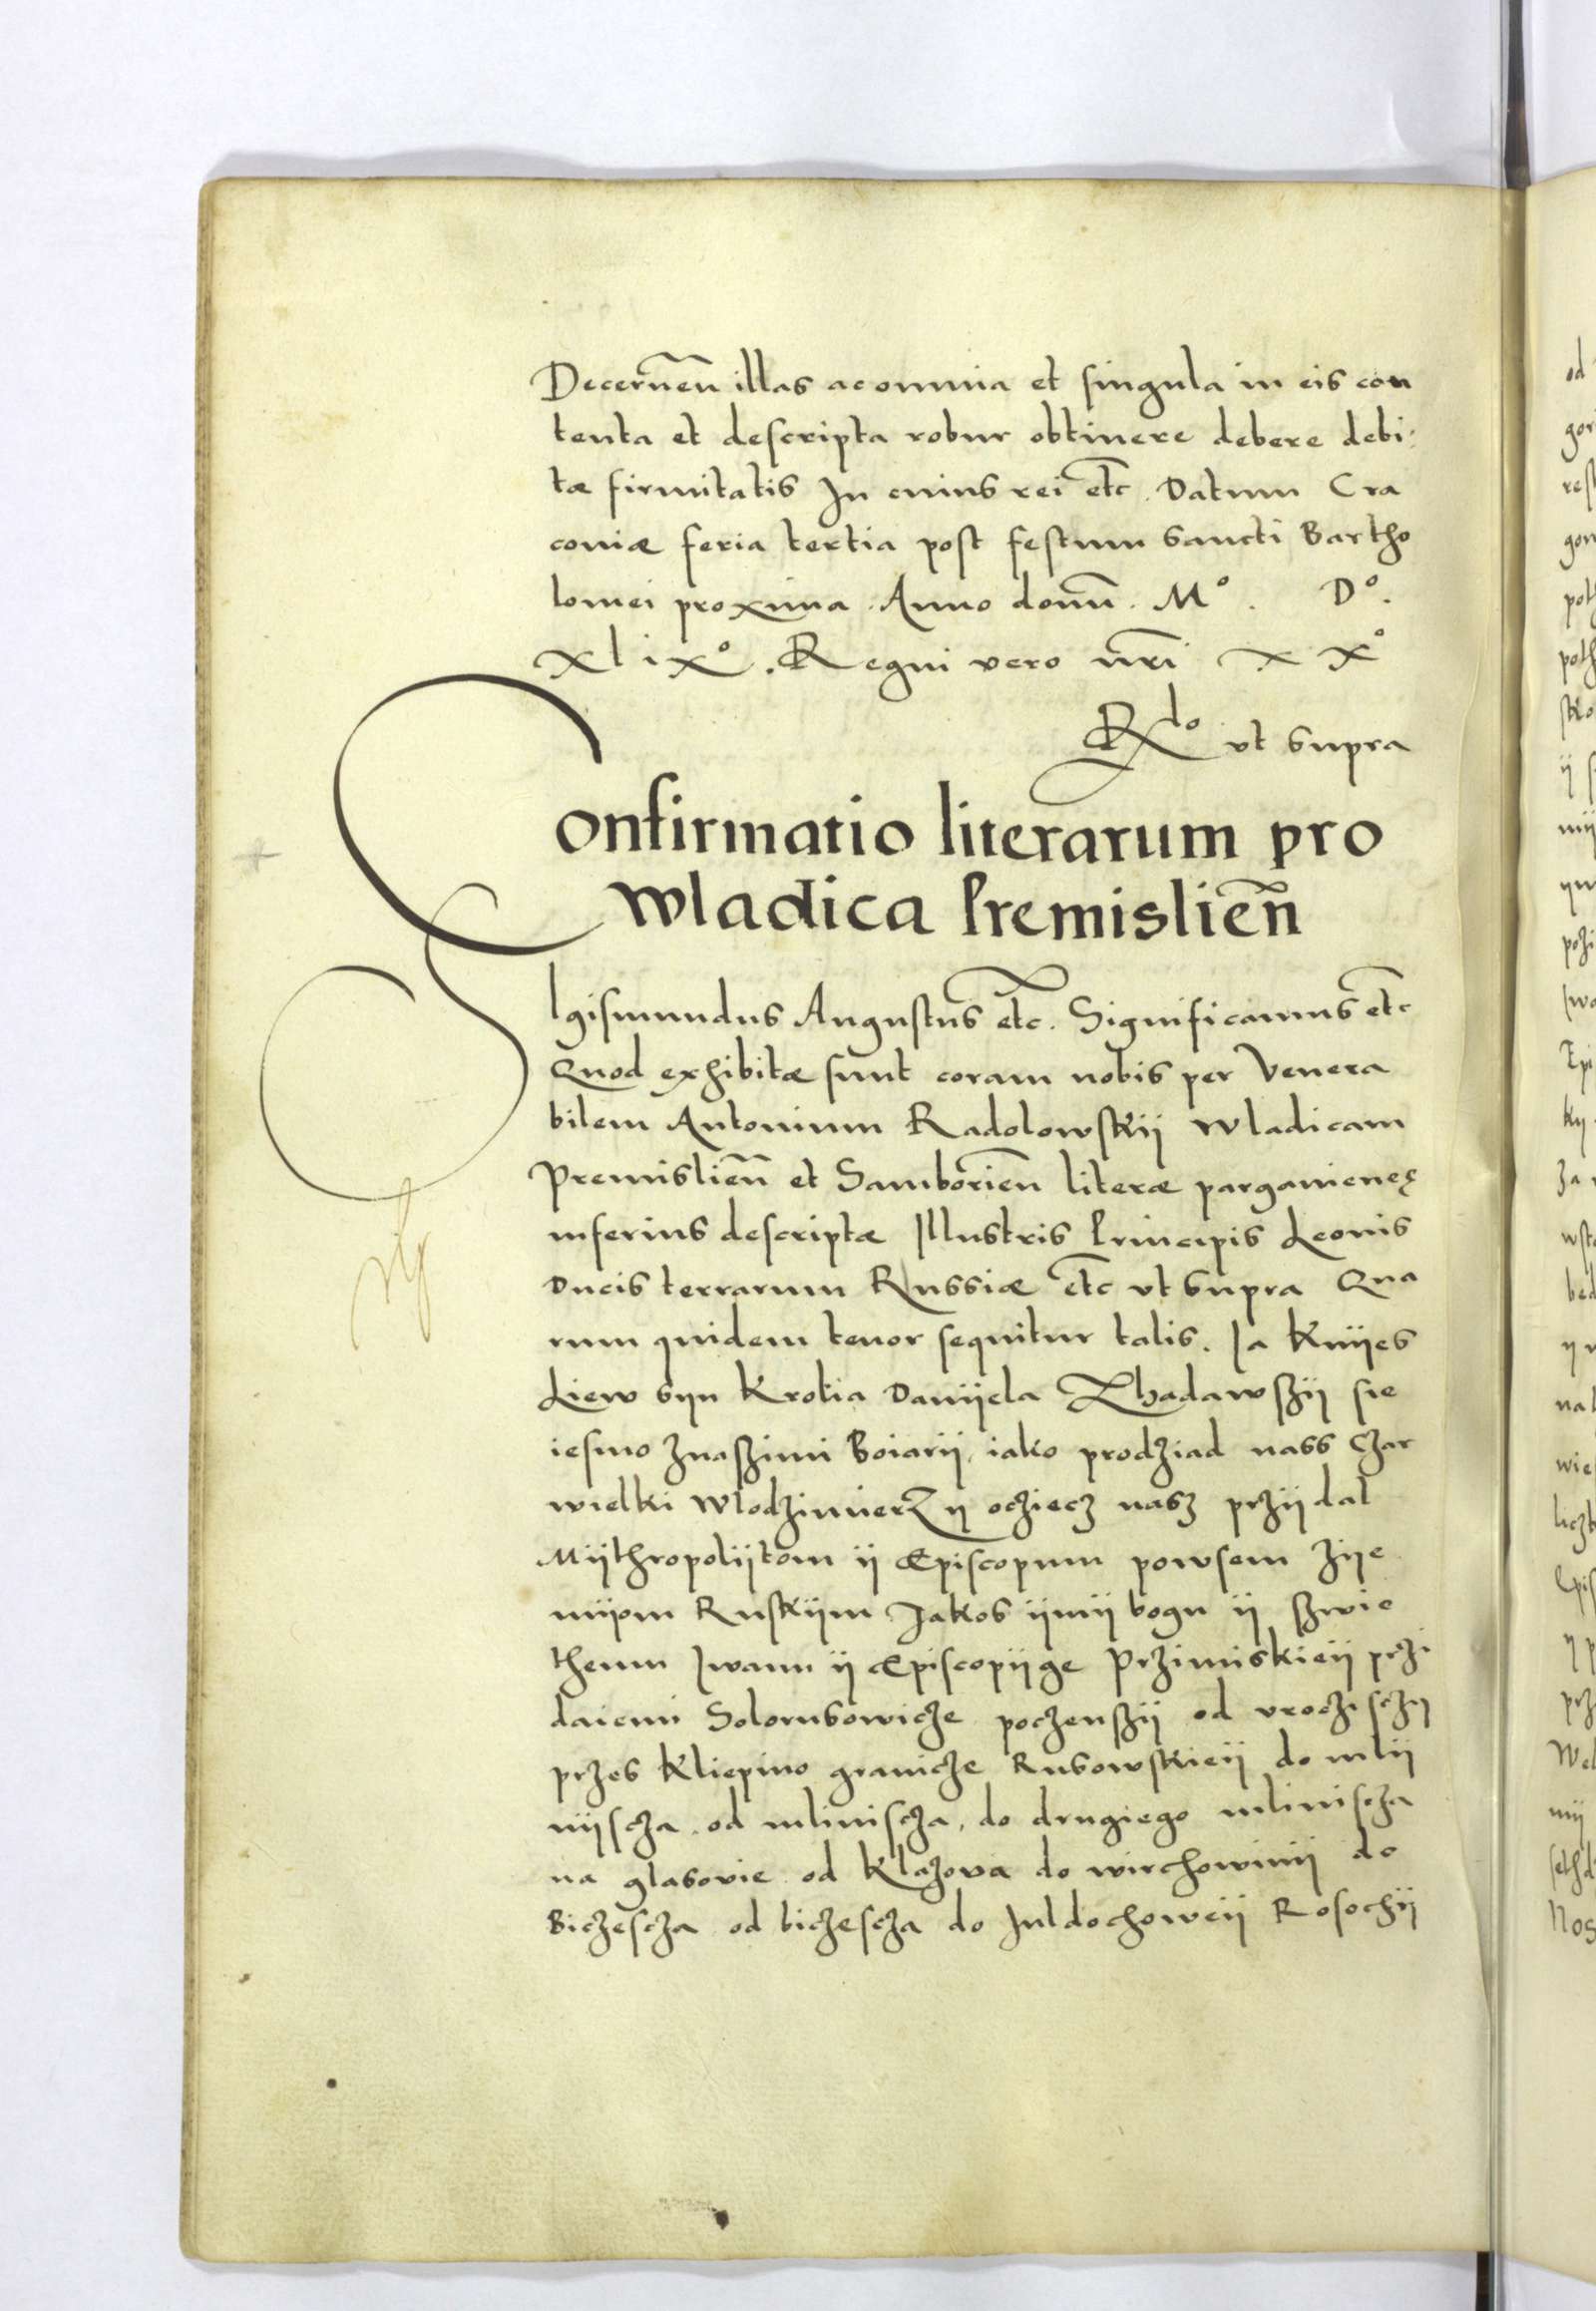 Decernen̄ illas ac omnia et singula in eis con
tenta et descripta robur obtinere debere debi:
tæ firmitatis In cuius rei etc̄. Datum Cra
coviæ feria tertia post festum Sancti Bartho
lomei proxima. Anno domī. M°. D°.
xlix°. Regni vero nr̄i xx°
Rdo vt supra
Confirmatio literarum pro
wladica Premislien̄
SIgismundus Augustus etc̄. Significamus etc̄
Quod exhibitæ sunt coram nobis per Venera
bilem Antonium Radolowskij wladicam
Premislien̄ et Samborien̄ literæ pargameneę
inferius descriptæ Illustris Principis Leonis
Ducis terrarum Russiæ etc̄ vt supra Qua
rum quidem tenor sequitur talis. Ia Knijes
Liew sijn Krolia Danijela Zhadawszij sie
iesmo znaszimi Boiarij, iako prodziad nass Czar
wielki Wlodzimierz ij ocziecz nasz przijdal
Mijthropolijtom ij Episcopum powsem zije
mijom Ruskijm Jakos ijmij bogu ij szwie
themu Iwanu ij Episcopijge Przimiskieij przi
daiemi Solomsowicze poczenszij od vroczisczij
przes Kliepino granicze Rusowskieij do mlij
nijscza. od mliniscza, do drugiego mliniscza
na glasovie od Klazova do wirchowinij do
Biczescza od biczescza do Juldochoweij Rosochij